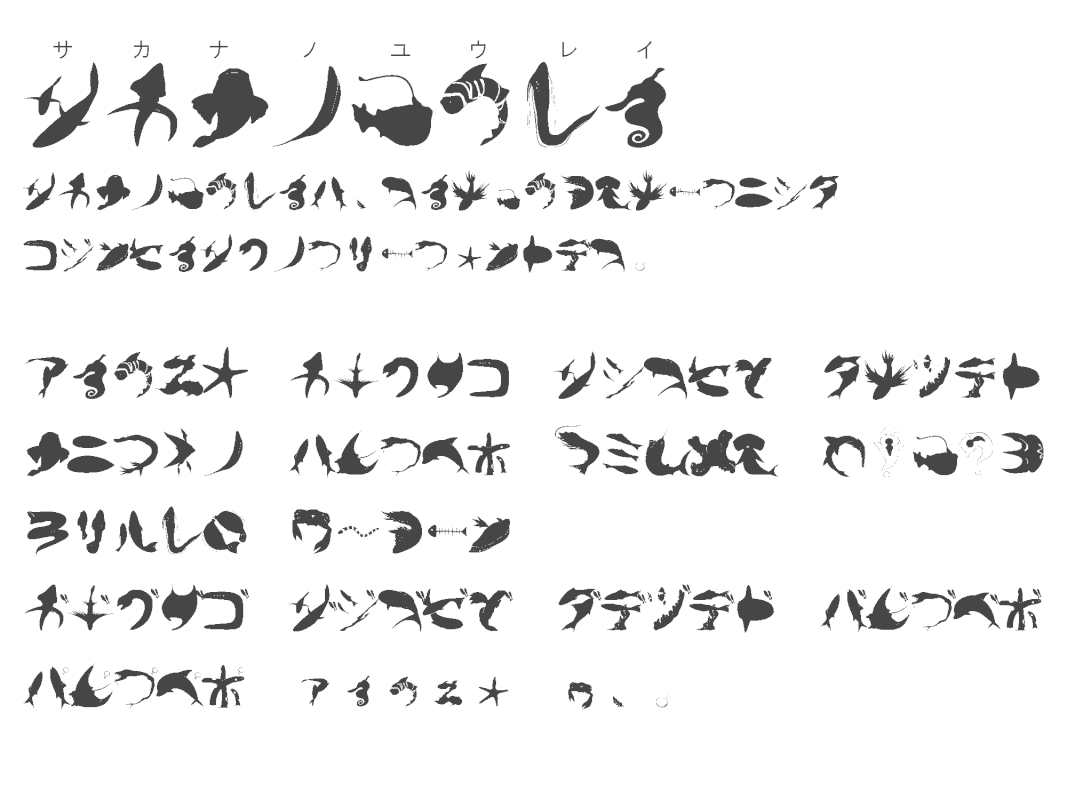 サ カ ナ ノ ユ ウ レ イ
サカナノユウレイ
サカナノユウレイハ、スイチュウヲモチーフニシタ
コジンセイサクノフリーフォントデス。
アイウエオ カキクケコ サシスセソ タチツテト
ナニヌネノ ハヒフヘホ マミムメモ ヤ！ユ？ヨ
ラリルレロ ワ〜ヲーン
ガギグゲゴ ザジズゼゾ ダヂヅデド バビブベボ
パピプペポ ァィゥェォ ヮ、。